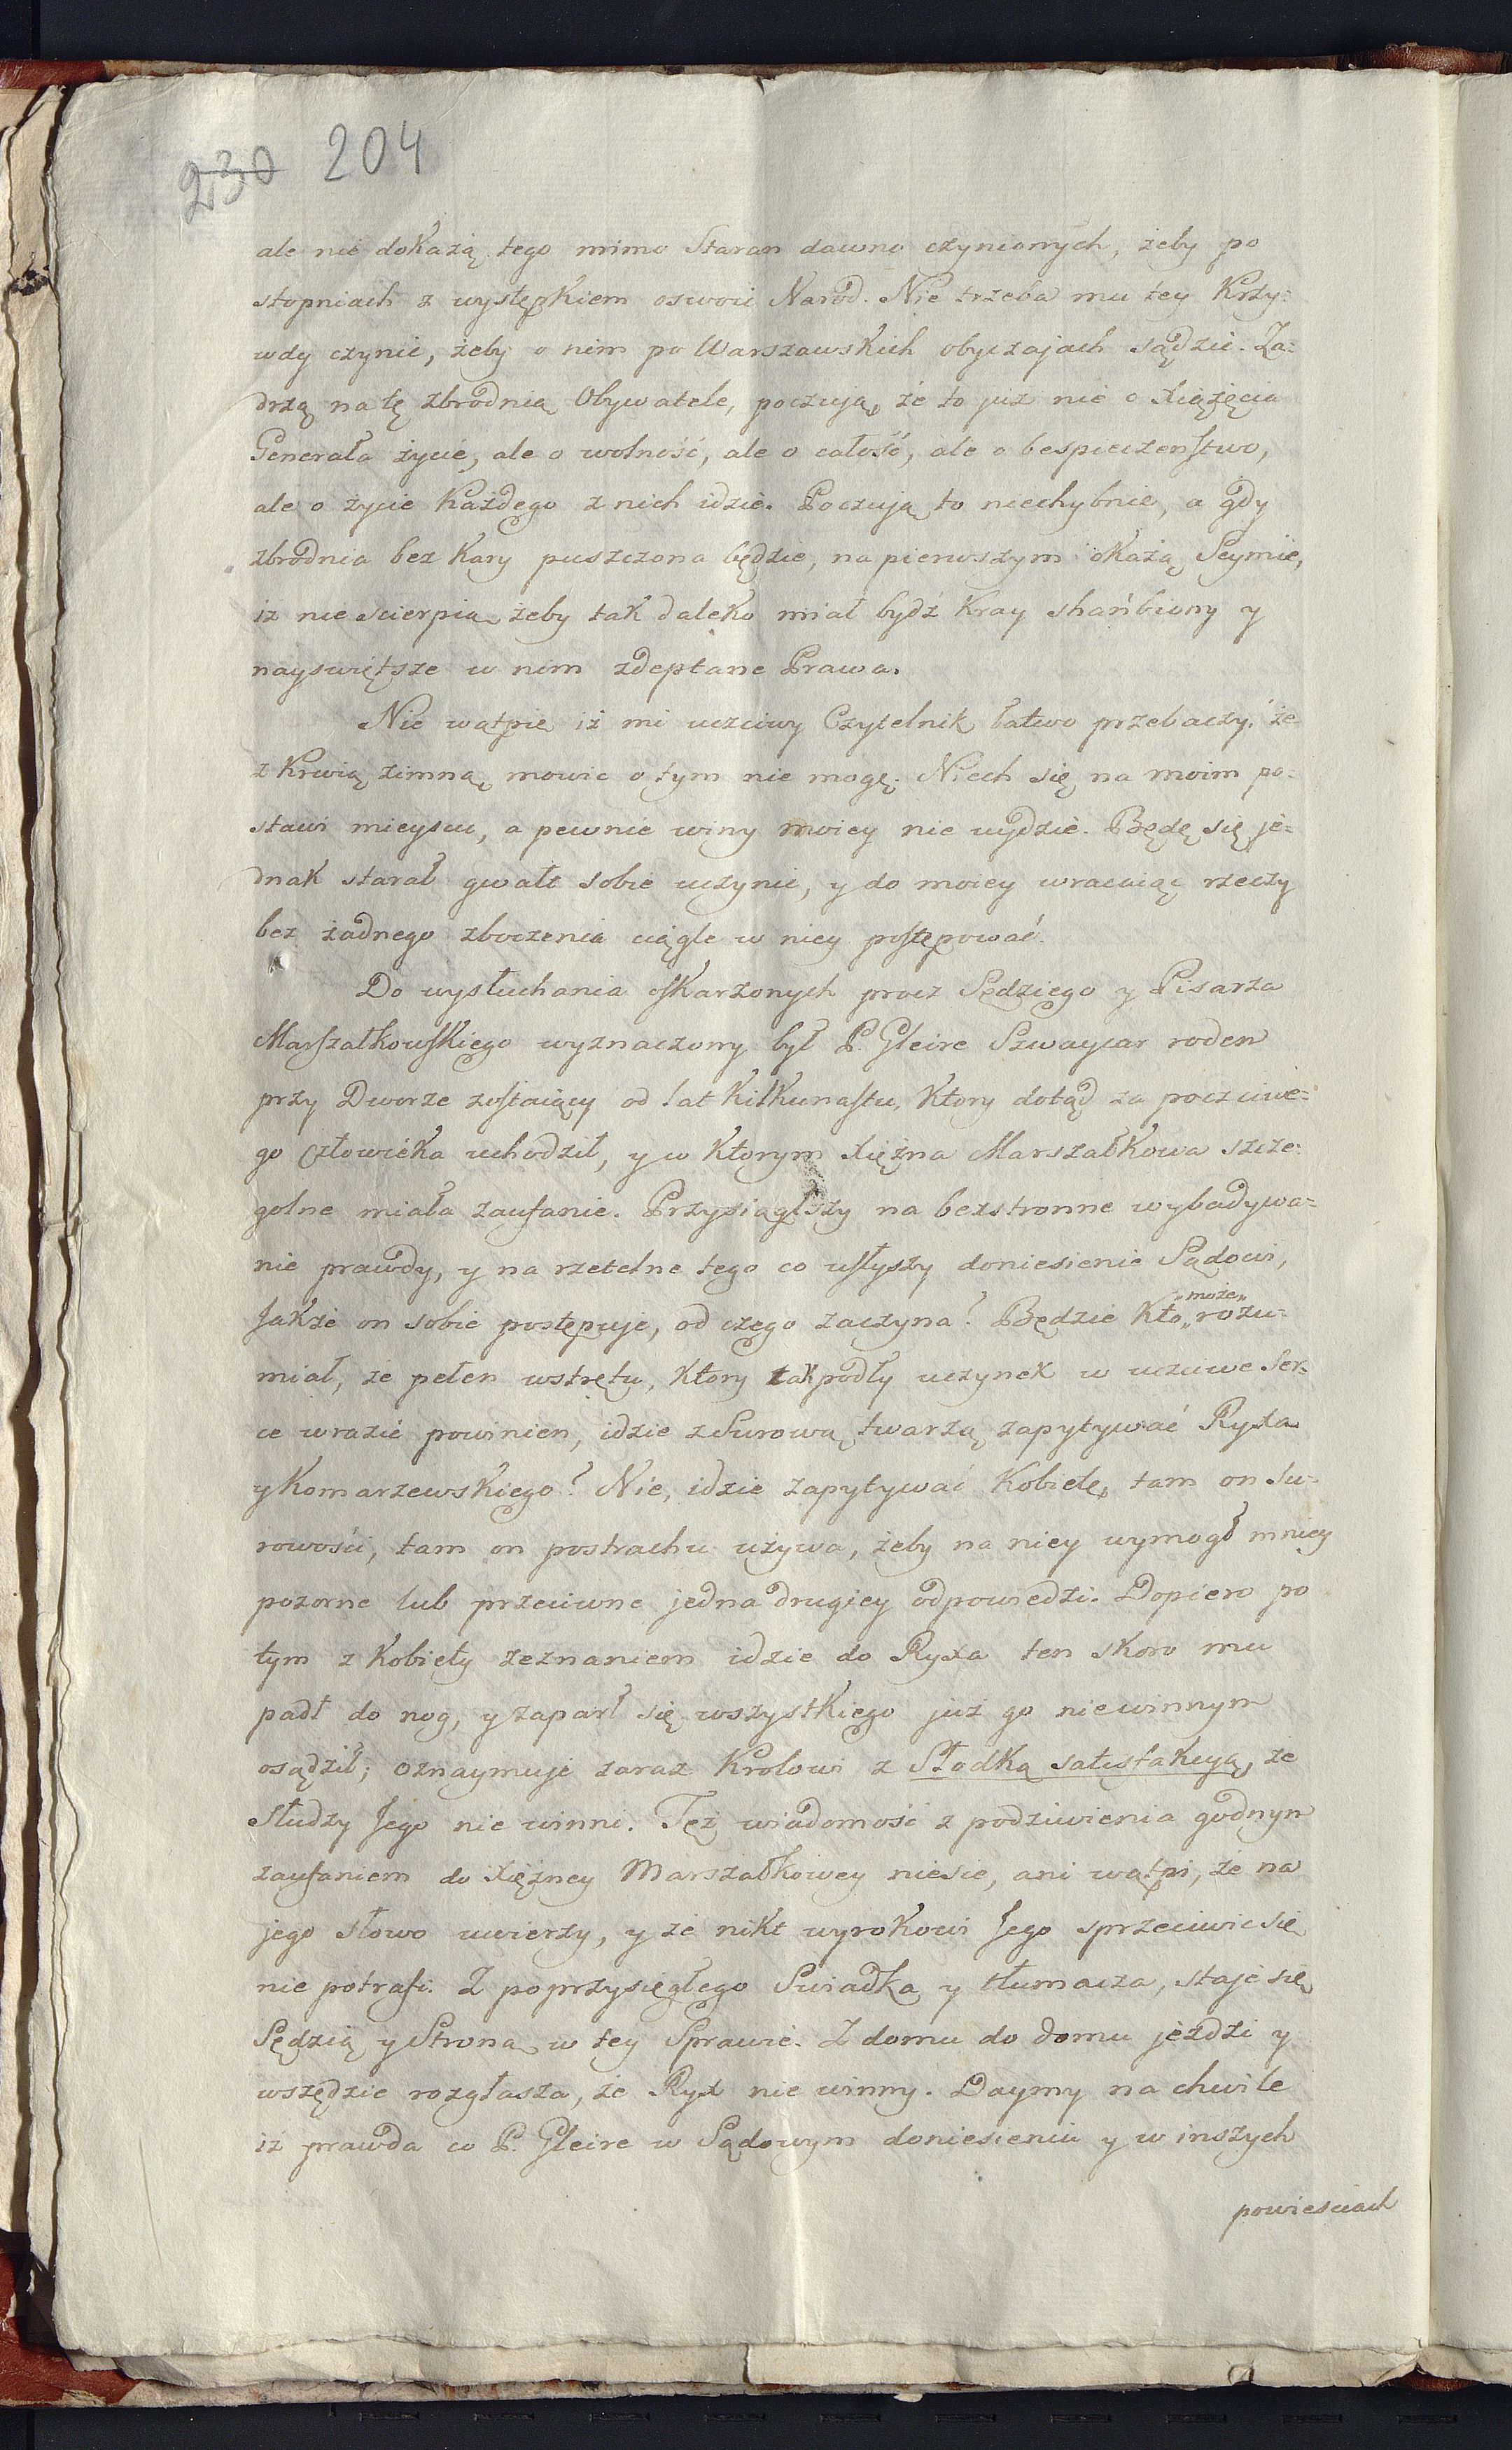 230 204
ale nie dokażą tego mimo Staran dawno czynionych, żeby po
stopniach z występkiem oswoić Narod. Nie trzeba mu tey Krzy=
wdy czynić, żeby o nim po Warszawskich obyczajach sądzić. Za=
drżą na tę zbrodnią Obywatele, poczują, że to już nie o Xiążęcia
Generała życie, ale o wolność, ale o całość, ale o bespieczenstwo,
ale o życie Każdego z nich idzie. Poczują to niechybnie, a gdy
zbrodnia bez Kary puszczona będzie, na pierwszym okażą Seymie,
iż nie scierpią żeby tak daleko miał bydź Kray shańbiony y
nayswiętsze w nim zdeptane Prawa.
Nie wątpię iż mi uczciwy Czytelnik łatwo przebaczy, że
z Krwią zimną mowic o tym nie mogę. Niech się na moim po=
stawi mieyscu, a pewnie winy moiey nie uydzie. Będę się je=
dnak starał gwałt sobie uczynic, y do moiey wracaiąc rzeczy
bez żadnego zboczenia ciągle w niey postępować.
Do wysłuchania oskarzonych przez Sędziego y Pisarza
Marszałkowskiego wyznaczony był P. Gleire Szwaycar roden
przy Dworze zostaiący od lat Kilkunastu, Ktory dotąd za poczciwe=
go człowieka uchodził, y w Ktorym Xiężna Marszałkowa szcze=
golne miała zaufanie. Przysiągłszy na bezstronne wybadywa=
nie prawdy, y na rzetelne tego co usłyszy doniesienie Sądowi,
Jakże on sobie postępuje, od czego zaczyna? Będzie Kto „może„ rozu=
miał, że pełen wstrętu, Ktory tak podły uczynek w uczciwe Ser=
ce wrazić powinien, idzie z Surową twarzą zapytywać Ryxa
y Komarzewskiego? Nie, idzie zapytywać Kobietę, tam on Su=
rowości, tam on postrachu używa, żeby na niey wymogł mniey
pozorne lub przeciwne jedna drugiey odpowiedzi. Dopiero po
tym z Kobiety zeznaniem idzie do Ryxa ten skoro mu
padł do nog, y zaparł się wszystkiego już go niewinnym
osądził; oznaymuje zaraz Krolowi z Słodką satysfakcyą, że
Słudzy Jego nie winni. Też wiadomość z podziwienia godnym
zaufaniem do Xiężney Marszałkowey niesie, ani wątpi, że na
jego słowo uwierzy, y że nikt wyrokowi Jego sprzeciwic się
nie potrafi. Z poprzysięgłego Swiadka y tłumacza, staje się
Sędzią y Stroną w tey Sprawie. Z domu do domu jeździ y
wszędzie rozgłasza, że Ryx nie winny. Daymy na chwile
iż prawda co P. Gleire w Sądowym doniesieniu y w inszych
powiesciach